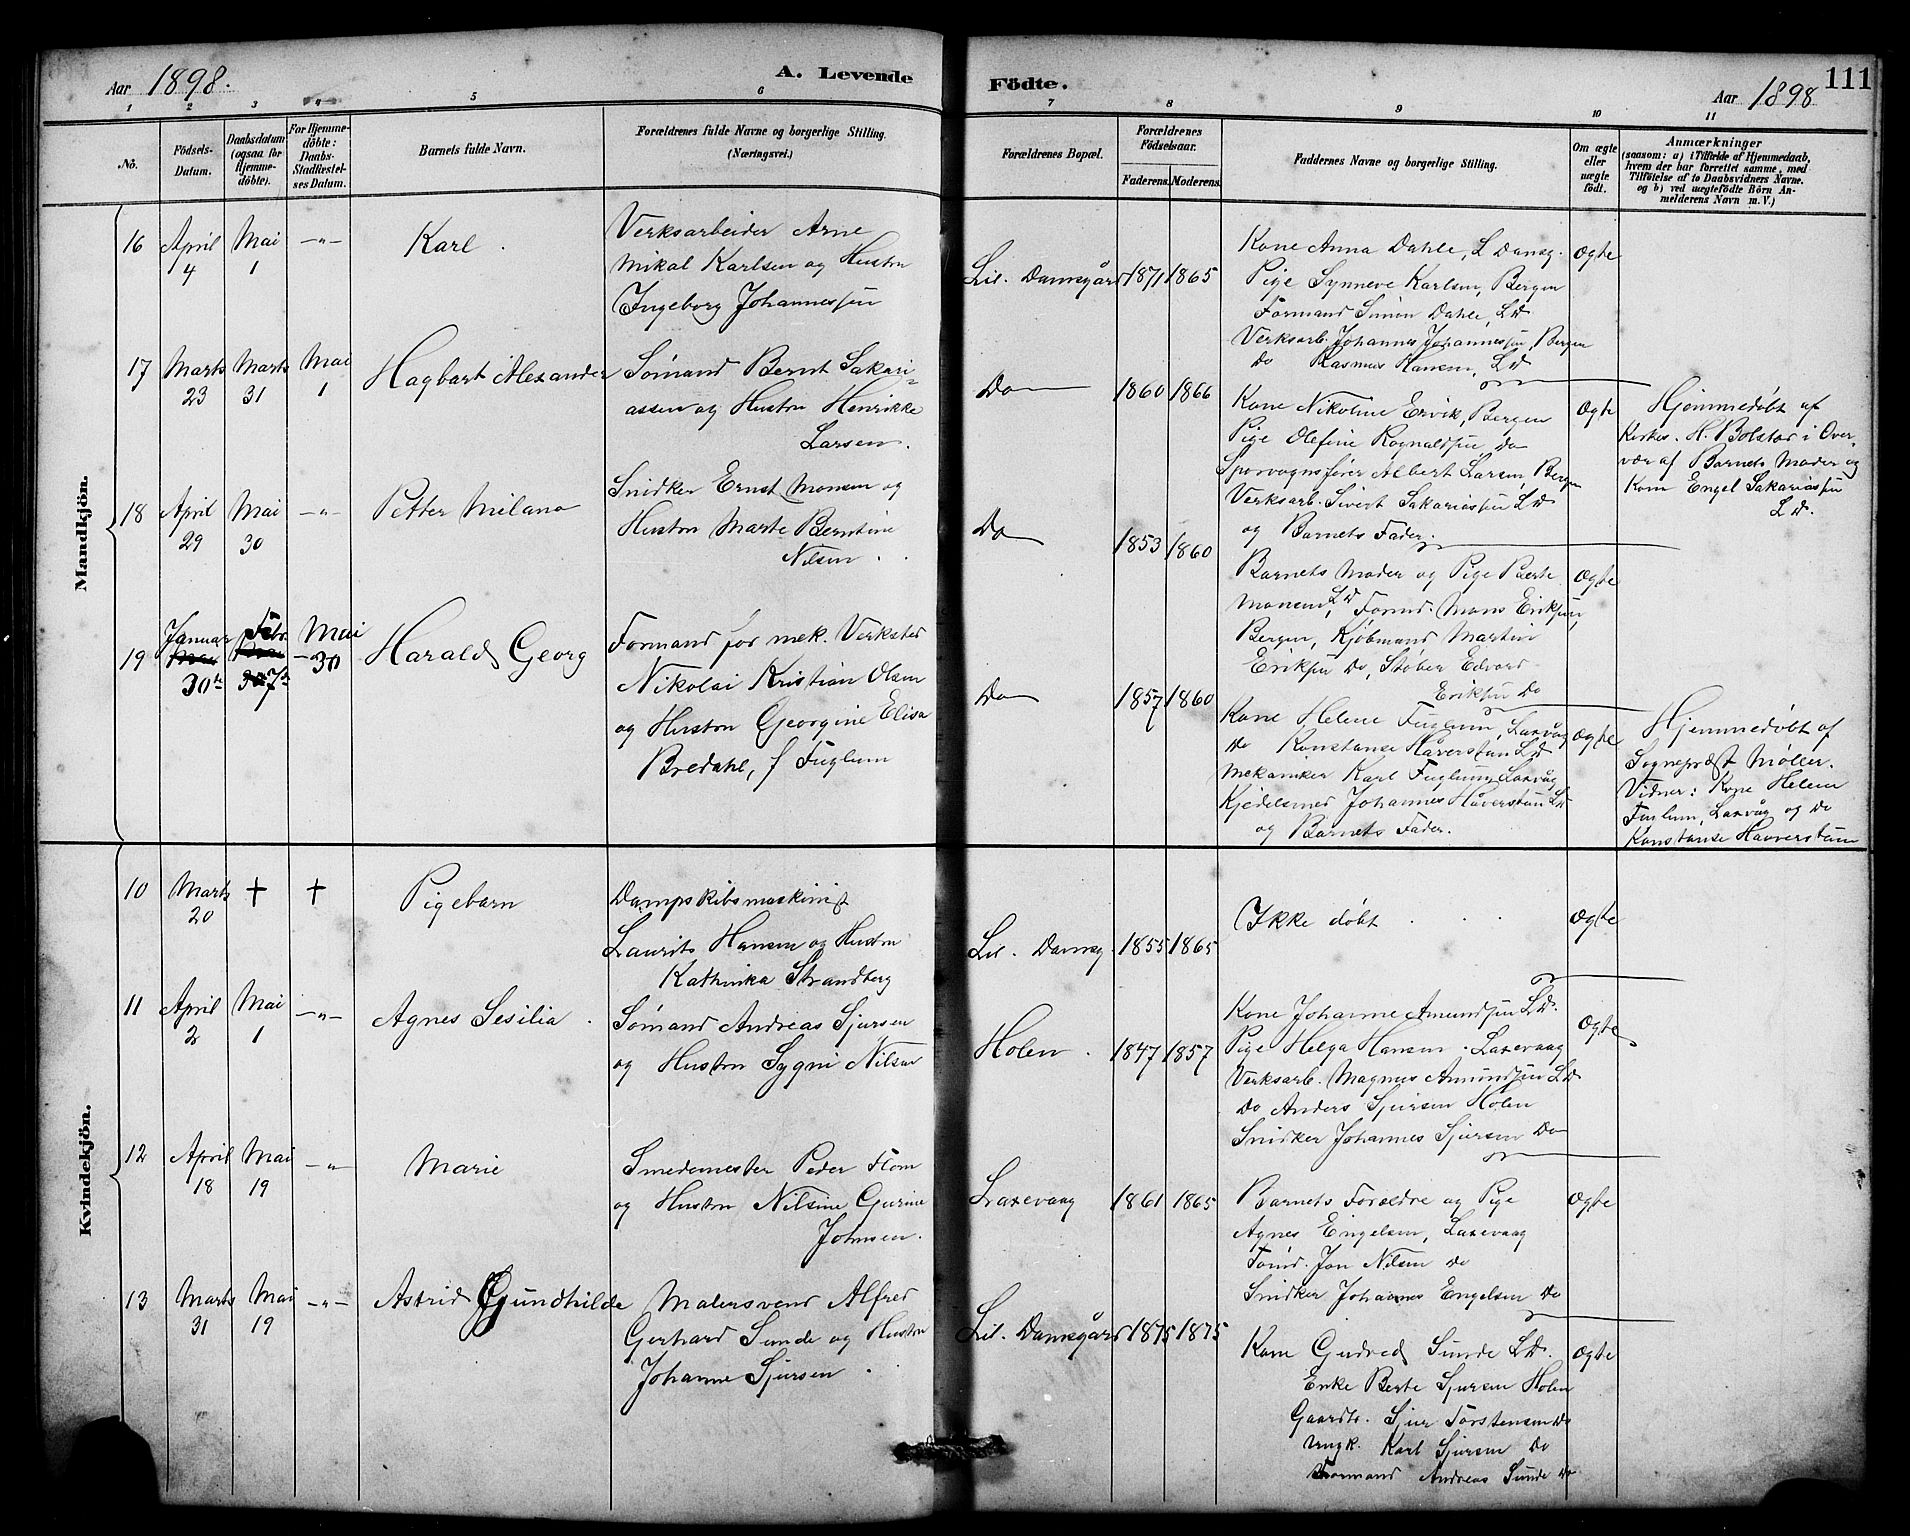 Aar 1898.
A. Levende
Födte.
Aar 1898
111
1 2 3 4 5 6 7 8 9 10 11
No.
Födsels-
Datum.
Daabsdatum
(ogsaa for
Hjemme-
döbte).
For Hjemme-
döbte:
Daabs-
Stadfæstel-
ses Datum.
Barnets fulde Navn.
Forældrenes fulde Navne og borgerlige Stilling.
(Næringsvei.)
Forældrenes Bopæl.
Forældrenes
Födselsaar.
Faderens. Moderens.
Faddernes Navne og borgerlige Stilling.
Om ægte
eller
uægte
födt.
Anmærkninger
(saasom: a) i Tilfælde af Hjemmedaab,
hvem der har forrettet samme, med
Tilföielse af to Daabsvidners Navne,
og b) ved uægtefödte Börn An-
melderens Navn m. V.)
Mandkjön.
16 April 4 Mai 1 -"- Karl.
Verksarbeider Arne
Mikal Karlsen og Hustru
Ingeborg Johannessen
Lil. Damsgård 1871 1865
Kone Anna Dahle, L Damsg.
Pige Synneve Karlsen, Bergen
Formand Simon Dahle, LD
Verksarb. Johannes Johannessen, Bergen
Do Rasmus Hansen, LD
Ægte
17 Marts 23 Marts 31 Mai 1 Hagbart Alexander
Sømand Bernt Sakari-
assen og Hustru Henrikke
Larsen.
Do 1860 1866
Kone Nikoline Ervik, Bergen
Pige Olefine Rognaldsen, do
Sporvognsfører Albert Larsen, Bergen
Verksarb. Sivert Sakariassen LD
og Barnets Fader.
Ægte
Hjemmedøbt af
Kirkes. H. Bolstad i Over-
vær af Barnets Moder og
Kone Engel Sakariassen
LD.
18 April 29 Mai 30 -"- Petter Milano
Snidker Ernst Monsen og
Hustru Marte Berntine
Nilsen.
Do 1853 1860
Barnets Moder og Pige Berte
Monsen, LD, Formd. Mons Eriksen,
Bergen, Kjøbmand Martin
Eriksen Do, Støber Edvard
Eriksen Do
Ægte
19 Januar 30te Febr. 7de Mai 30 Harald Georg
Formand for mek. Verksted
Nikolai Kristian Olsen
og Hustru Georgine Elisa
Bredahl, f Fuglum
Do 1857 1860
Kone Helene Fuglum, Laxvåg
Do Konstanse Håverstun LD
Mekaniker Karl Fuglum, Laxvåg
Kjedelsmed Johannes Håverstun LD
og Barnets Fader.
Ægte
Hjemmedøbt af
Sognepræst Møller.
Vidner: Kone Helene
Fuglum, Laxvåg og Do
Konstanse Haaverstun
Kvindekjön.
10 Marts 20 † † Pigebarn
Dampskibsmaskinist
Laurits Hansen og Hustru
Kathinka Strandberg
Lil. Damsg. 1855 1865
Ikke døbt
Ægte
11 April 2 Mai 1 -"- Agnes Sesilia.
Sømand Andreas Sjursen
og Hustru Sygni Nilsen
Holen. 1847 1857
Kone Johanne Amundsen LD.
Pige Helga Hansen. Laxevaag
Verksarb. Magnus Amundsen LD
Do Anders Sjursen Holen
Snidker Johannes Sjursen Do
Ægte
12 April 18 Mai 19 -"- Marie
Smedemester Peder Flom
og Hustru Nilsine Gurine
Johnsen.
Laxevaag 1861 1865
Barnets Forældre og Pige
Agnes Engelsen, Laxevaag
Tømd. Jon Nilsen Do
Snidker Johannes Engelsen Do
Ægte
13 Marts 31 Mai 19 -"- Astrid Gundhilde
Malersvend Alfred
Gerhard Sunde og Hustru
Johanne Sjursen.
Lil. Damsgård 1875 1875
Kone Gudved Sunde LD.
Enke Berte Sjursen Holen
Gaardbr. Sjur Torstensen Do
Ungk. Karl Sjursen Do
Formand Andreas Sunde Do
Ægte